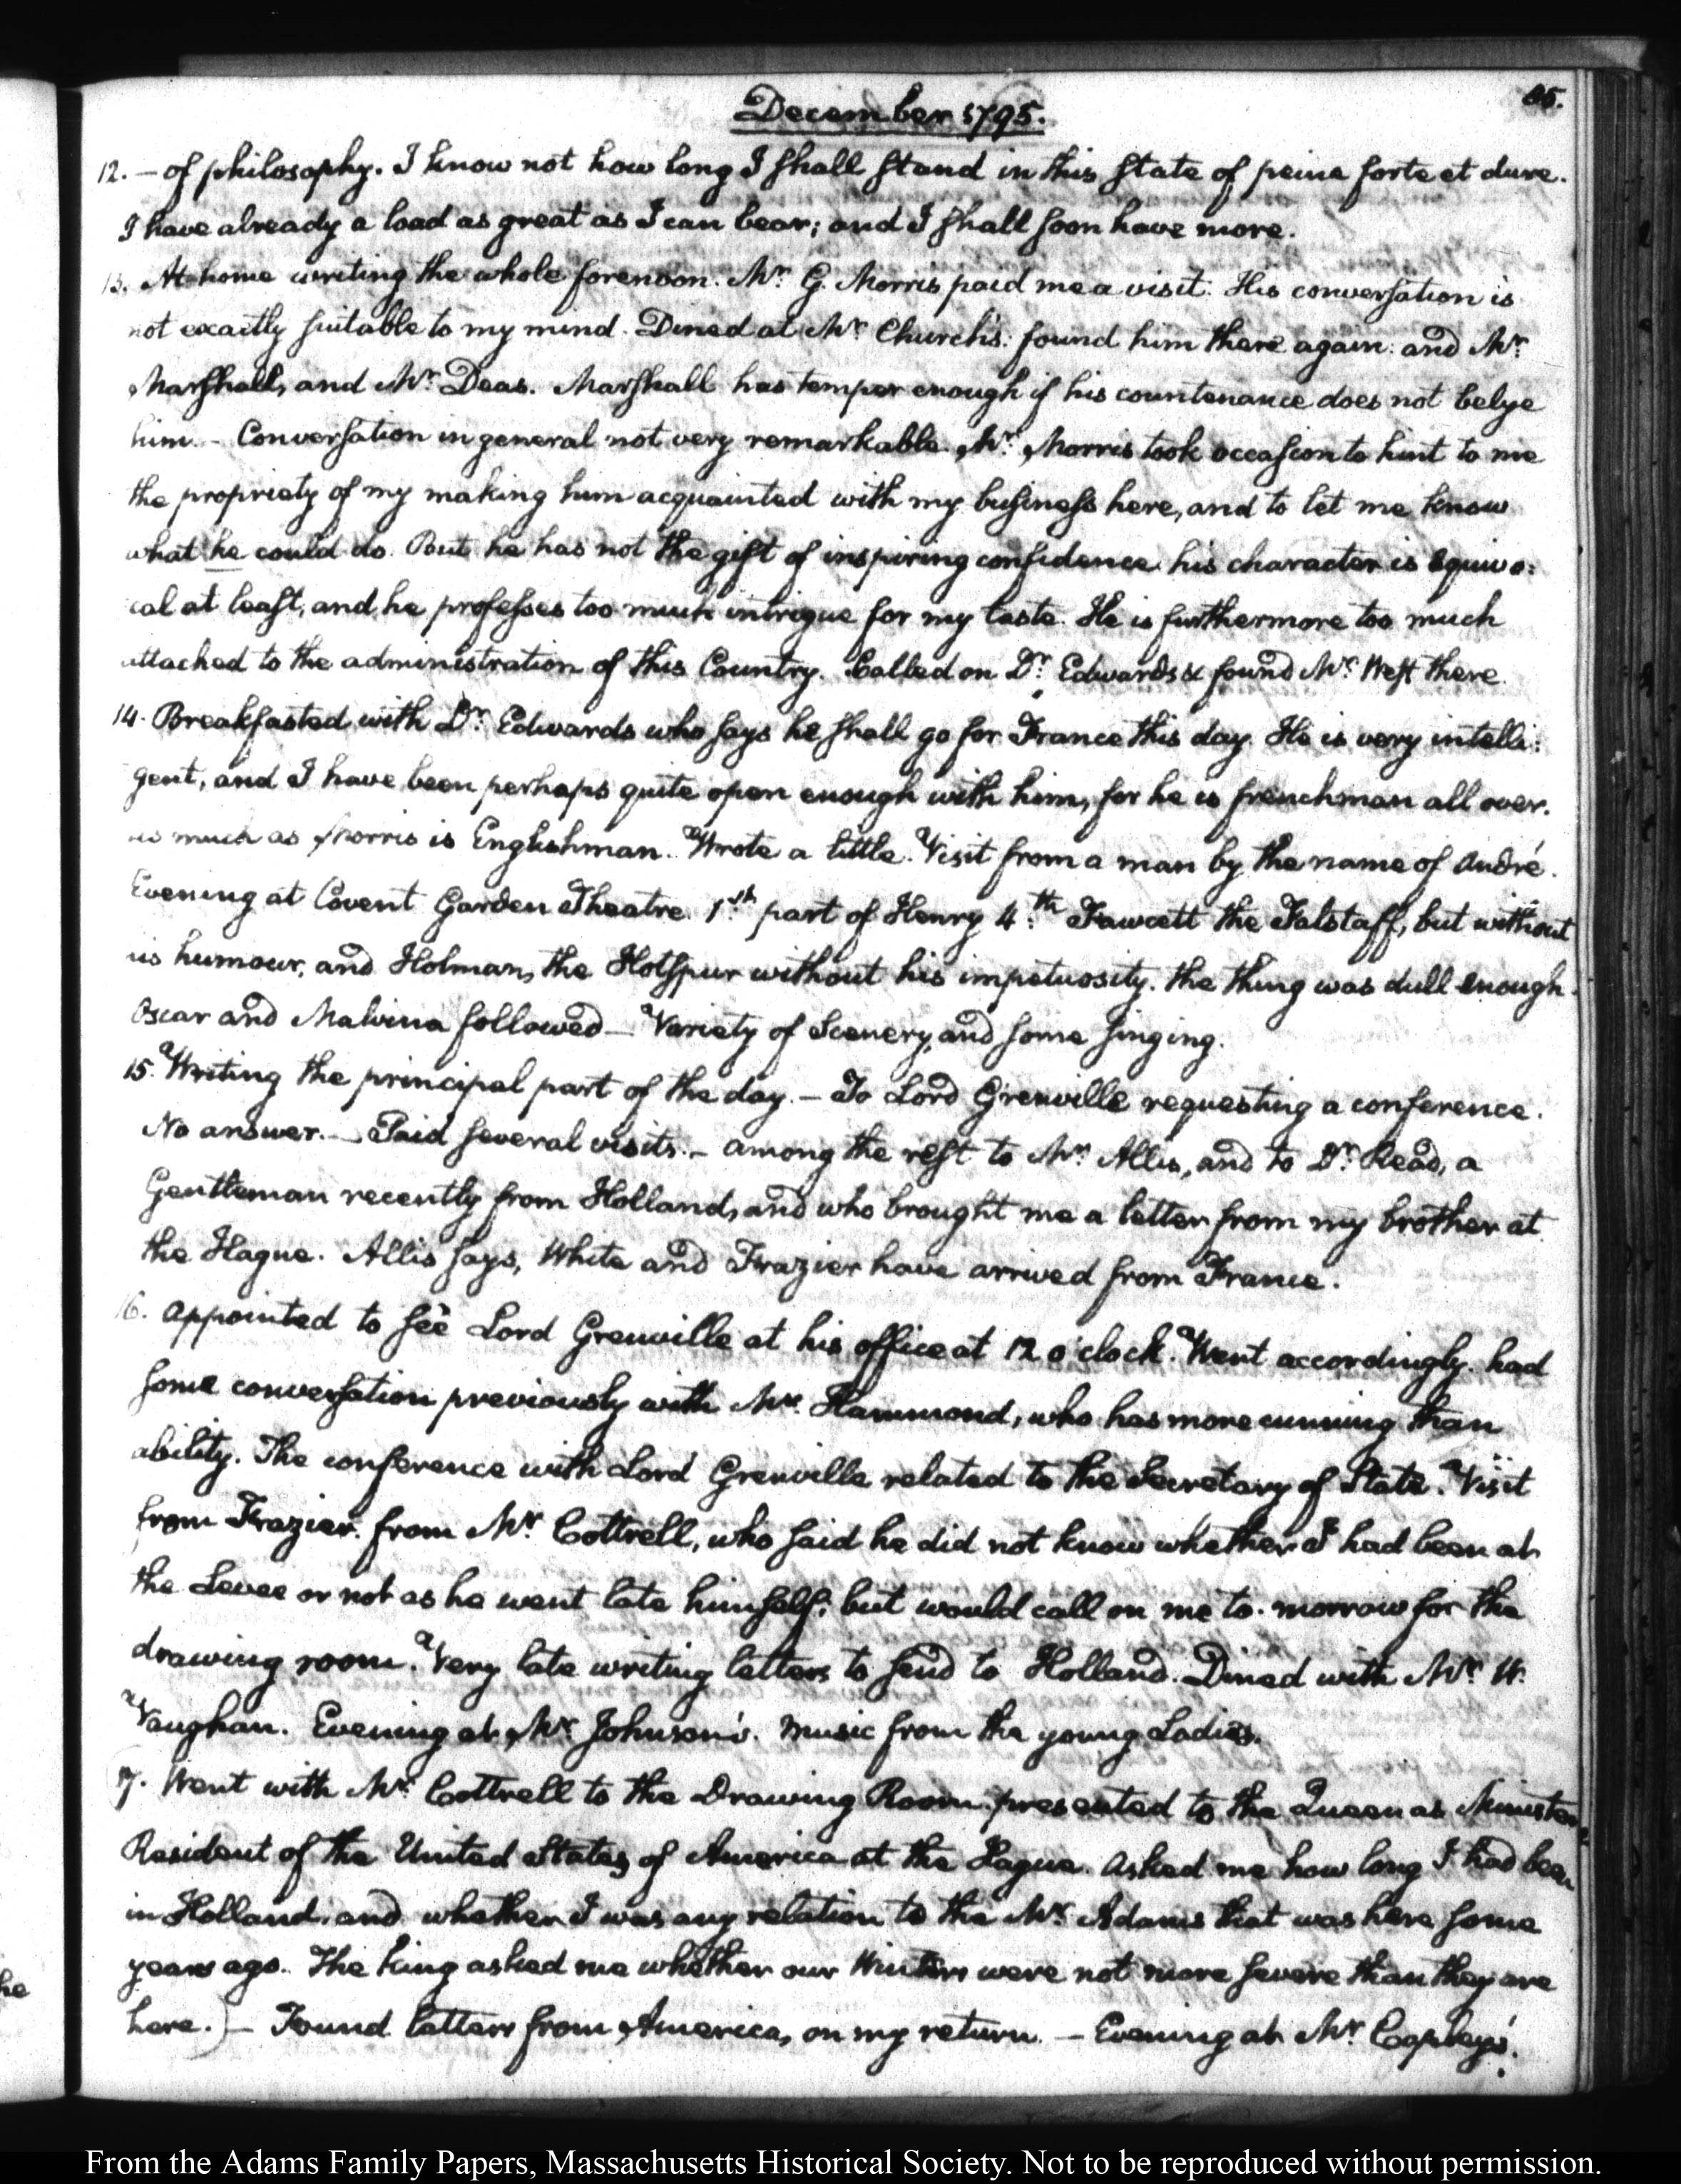 December 1795.
85.
12. — of philosophy. I know not how long I shall stand in this state of peine forte et dure.
I have already a load as great as I can bear; and I shall soon have more.
13. At home writing the whole forenoon. Mr. G. Morris paid me a visit. His conversation is
not exactly suitable to my mind. Dined at Mr. Church's: found him there again: and Mr.
Marshall, and Mr. Deas. Marshall has temper enough if his countenance does not belye
him. — Conversation in general not very remarkable. Mr. Morris took occasion to hint to me
the propriety of my making him acquainted with my business here, and to let me know
what he could do. But he has not the gift of inspiring confidence. his character is equivo:
cal at least, and he professes too much intrigue for my taste. He is furthermore too much
attached to the administration of this Country. Called on Dr. Edwards & found Mr. West there.
14. Breakfasted with Dr. Edwards who says he shall go for France this day. He is very intelli:
gent, and I have been perhaps quite open enough with him, for he is frenchman all over.
as much as Morris is Englishman. Wrote a little. Visit from a man by the name of André.
Evening at Covent Garden Theatre. 1st part of Henry 4.th Fawcett the Falstaff, but without
his humour, and Holman, the Hotspur without his impetuosity. the thing was dull enough.
Oscar and Malvina followed — Variety of Scenery, and some singing.
15. Writing the principal part of the day. — To Lord Grenville requesting a conference.
No answer. — Paid several visits. — among the rest to Mr. Allis, and to Dr. Read, a
Gentleman recently from Holland, and who brought me a letter from my brother at
the Hague. Allis says, White and Frazier have arrived from France.
16. Appointed to see Lord Grenville at his office at 12 o'clock. Went accordingly. had
some conversation previously with Mr. Hammond, who has more cunning than
ability. The conference with Lord Grenville related to the Secretary of State. Visit
from Frazier. from Mr. Cottrell, who said he did not know whether I had been at
the Levee or not as he went late himself; but would call on me to-morrow for the
drawing room. Very late writing letters to send to Holland. Dined with Mr. W.
Vaughan. Evening at Mr. Johnson's. Music from the young Ladies.
17. Went with Mr. Cottrell to the Drawing Room. presented to the Queen as Minister
Resident of the United States of America at the Hague. Asked me how long I had been
in Holland, and whether I was any relation to the Mr. Adams that was here some
years ago. The King asked me whether our Winters were not more severe than they are
here.) — Found letters from America, on my return. — Evening at Mr. Copley's.
he
From the Adams Family Papers, Massachusetts Historical Society. Not to be reproduced without permission.